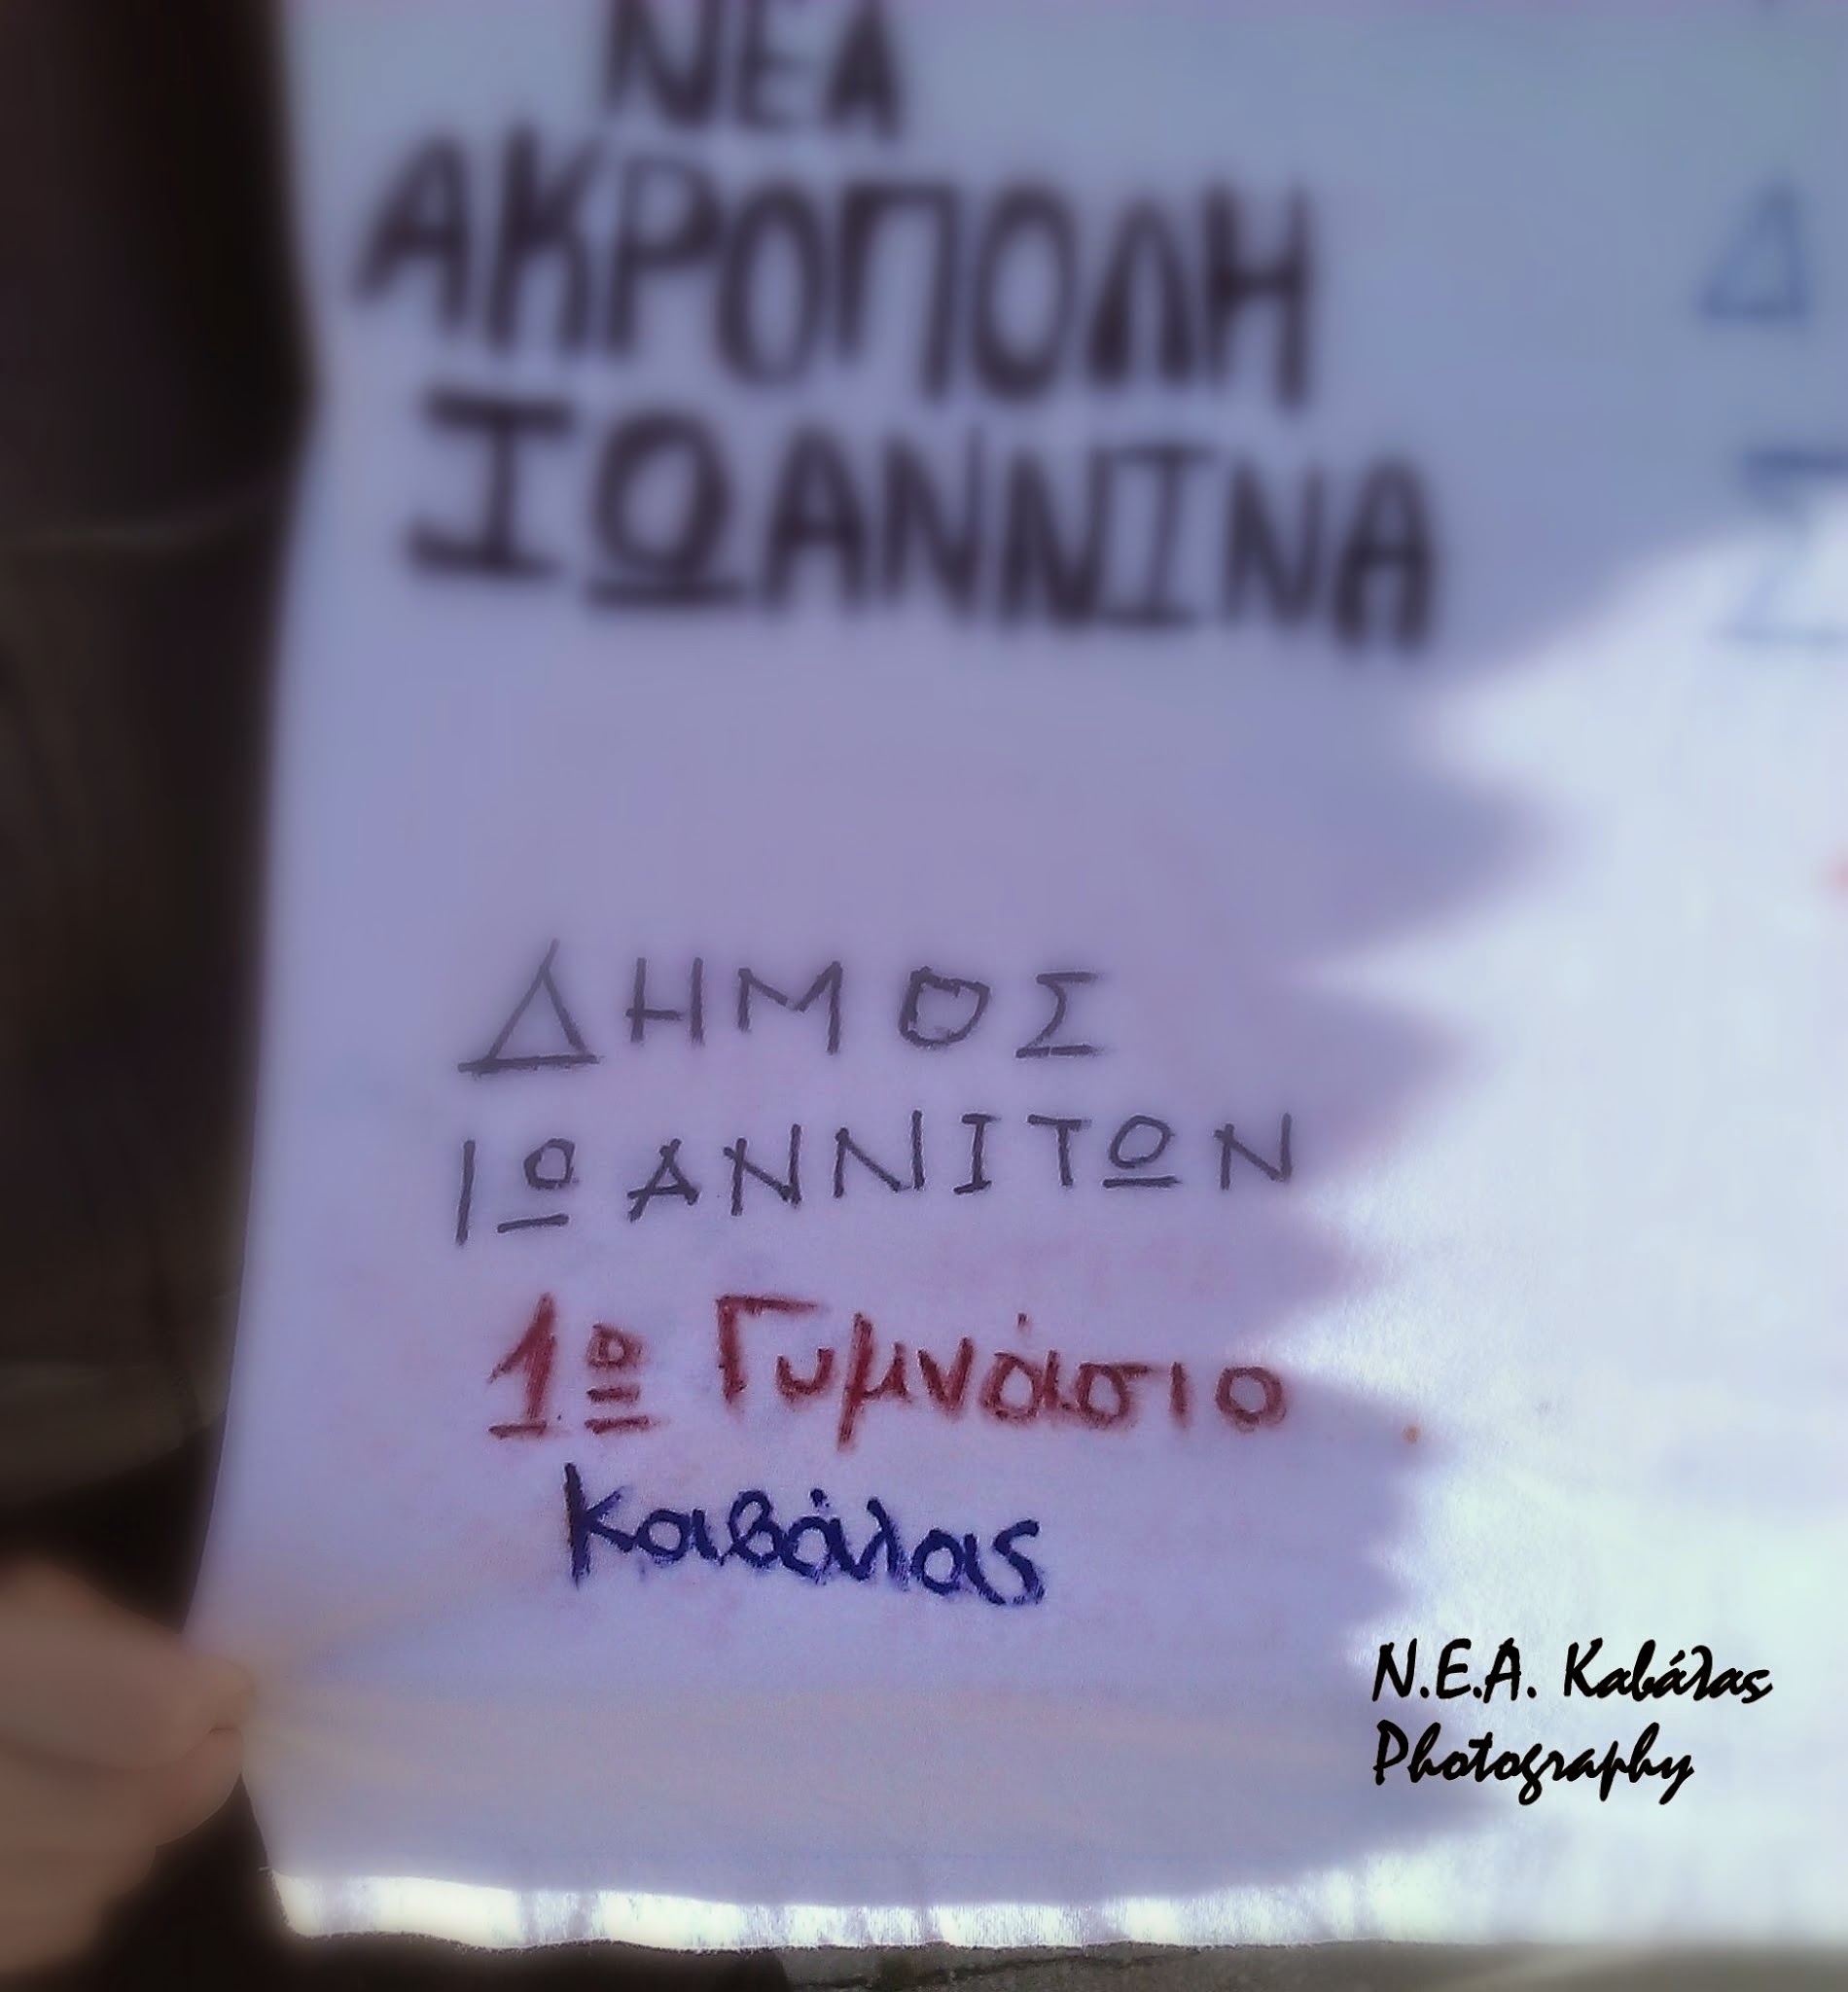 ΝΕΑ
ΑΚΡΟΠΟΛΗ
ΙΩΑΝΝΙΝΑ
ΔΗΜΟΣ
ΙΩΑΝΝΙΤΩΝ
1ο Γυμνάσιο
Καβάλας
Ν.Ε.Α. Καβάλας
Photography